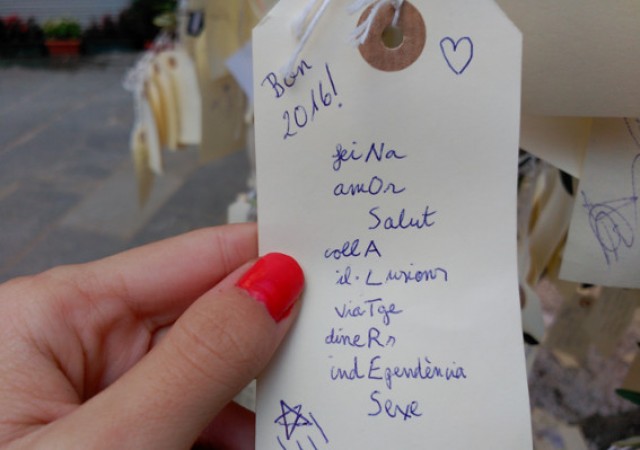 Bon
2016!
feiNa
amOr
Salut
collA
il·Lusions
viaTge
dineRs
indEpendència
Sexe